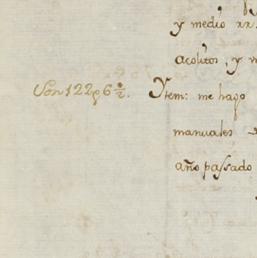 y medio rx.
acolitos, y
Son 122p 6 8/2. Ytem: me hago
manuales
año passado